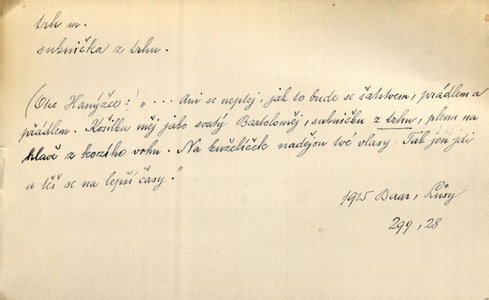 trh m.
suknička z trhu.
(Otec Hanýžce: „ ... Ani se neptej, jak to bude se šatstvem, prádlem a
přádlem. Košilku měj jako svatý Bartoloměj, sukničku z trhu, plenu na
hlavě z kozího vrhu. Na kuželíček nadějou tvé vlasy. Tak jen jdi
a těš se na lepší časy."
1925 Baar, Lůsy
299, 28